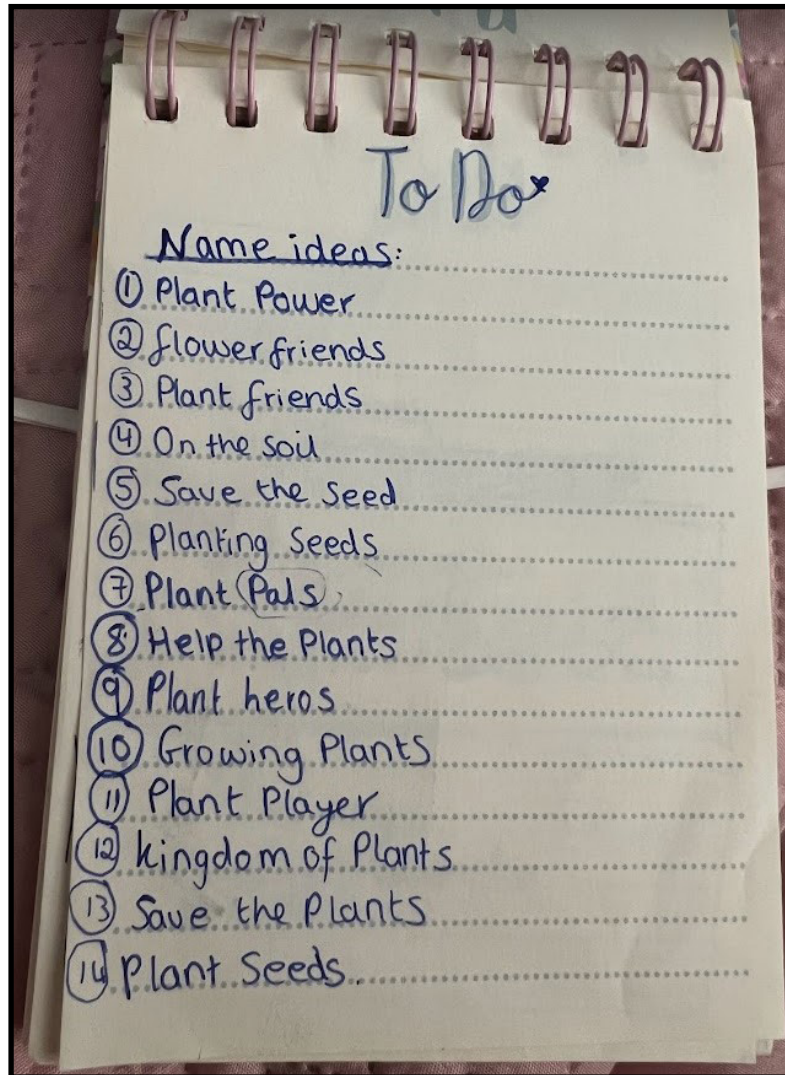 To Do
Name ideas:
① Plant Power
② flower friends
③ Plant friends
④ On the soil
⑤ Save the Seed
⑥ Planting Seeds
⑦ Plant Pals
⑧ Help the Plants
⑨ Plant heros
⑩ Growing Plants
⑪ Plant Player
⑫ kingdom of Plants
⑬ Save the Plants
⑭ Plant Seeds.